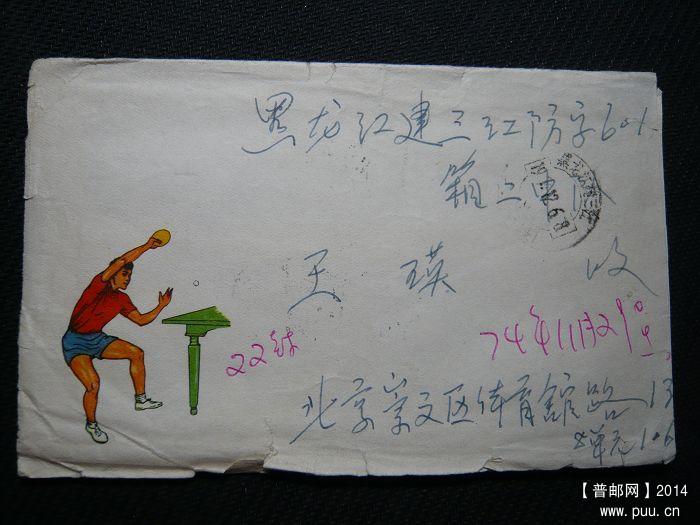 黑龙江建三江防字601
箱
王 瑛 收
22封
74年11月2
北京崇文区体育馆路13
8单元106
【普邮网】2014
www.puu.cn